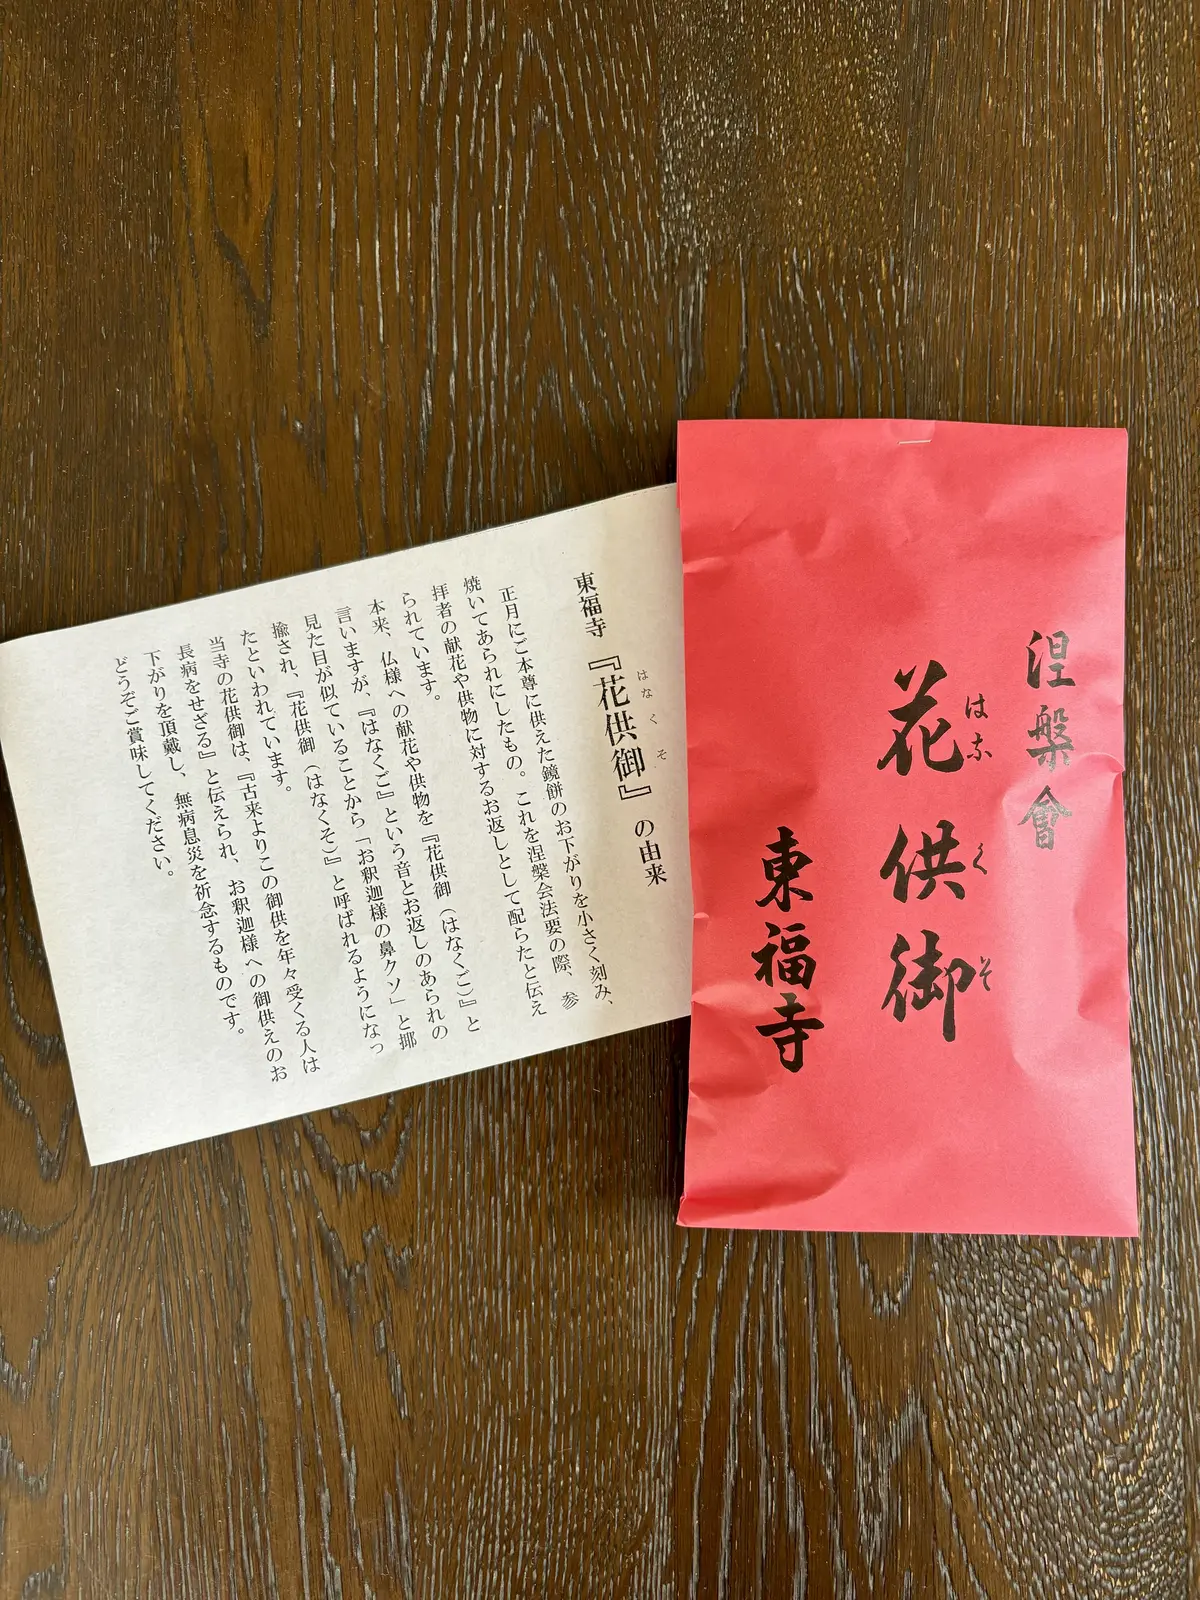 涅槃會
はな く そ
花供御
東福寺
東福寺 『花供御』 の由来
はなくそ
正月にご本尊に供えた鏡餅のお下がりを小さく刻み、
焼いてあられにしたもの。これを涅槃会法要の際、参
拝者の献花や供物に対するお返しとして配らたと伝え
られています。
本来、仏様への献花や供物を『花供御(はなくご)』と
言いますが、『はなくご』という音とお返しのあられの
見た目が似ていることから「お釈迦様の鼻クソ」と揶
揄され、『花供御(はなくそ)』と呼ばれるようになっ
たといわれています。
当寺の花供御は、『古来よりこの御供を年々受くる人は
長病をせざる』と伝えられ、お釈迦様への御供えのお
下がりを頂戴し、無病息災を祈念するものです。
どうぞご賞味してください。